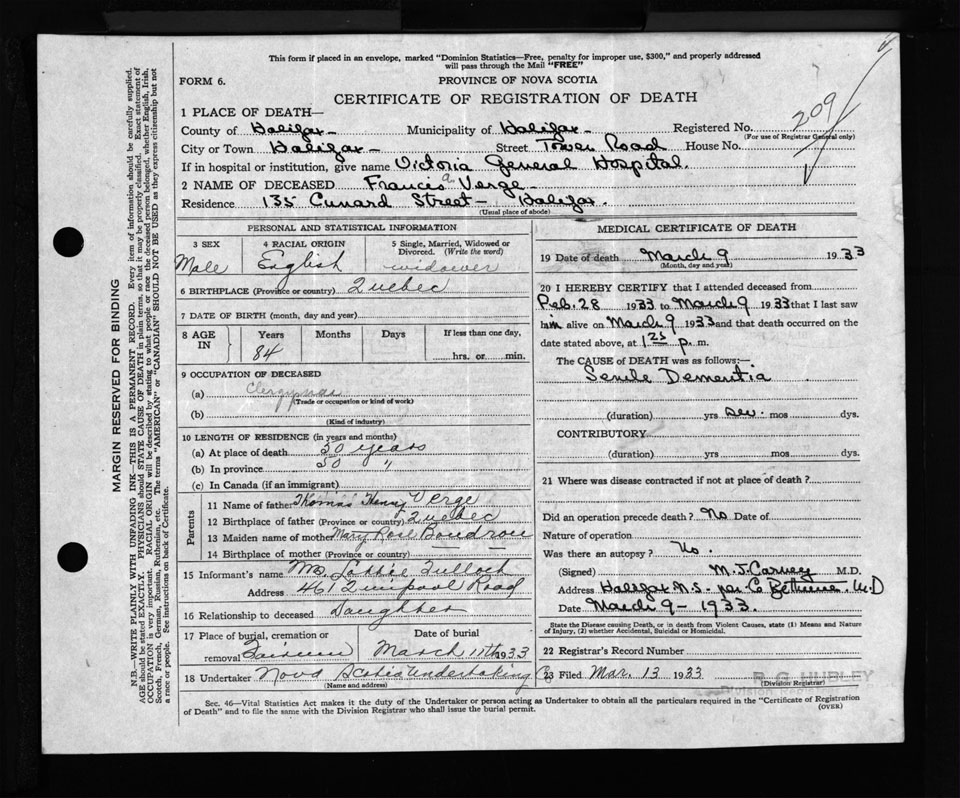 This form if placed in an envelope, marked "Dominion Statistics—Free, penalty for improper use, $300," and properly addressed
will pass through the Mail "FREE"
FORM 6.
PROVINCE OF NOVA SCOTIA
CERTIFICATE OF REGISTRATION OF DEATH
209
1 PLACE OF DEATH—
County of Halifax— Municipality of Halifax— Registered No.
(For use of Registrar General only)
City or Town Halifax— Street Tower Road House No.
If in hospital or institution, give name Victoria General Hospital.
2 NAME OF DECEASED Francis a Verge—
Residence 135 Cunard Street— Halifax.
(Usual place of abode)
PERSONAL AND STATISTICAL INFORMATION
3 SEX 4 RACIAL ORIGIN 5 Single, Married, Widowed or
Divorced. (Write the word)
Male English widower
6 BIRTHPLACE (Province or country) Quebec
7 DATE OF BIRTH (month, day and year)
8 AGE IN Years Months Days If less than one day,
84 hrs. or min.
9 OCCUPATION OF DECEASED
(a) Clergyman
(Trade or occupation or kind of work)
(b)
(Kind of industry)
10 LENGTH OF RESIDENCE (in years and months)
(a) At place of death 50 years
(b) In province 50 "
(c) In Canada (if an immigrant)
Parents
11 Name of father Thomas Henry Verge
12 Birthplace of father (Province or country) Quebec
13 Maiden name of mother Mary Rose
14 Birthplace of mother (Province or country) — —
15 Informant's name Mrs. Lottie Tulloch
Address 461 Quinpool Road
16 Relationship to deceased Daughter
17 Place of burial, cremation or Date of burial
removal March 11th 1933
18 Undertaker Nova Scotia Undertaking
(Name and address)
MEDICAL CERTIFICATE OF DEATH
19 Date of death March 9 1933
(Month, day and year)
20 I HEREBY CERTIFY that I attended deceased from
Feb. 28 1933 to March 9 1933 that I last saw
him alive on March 9 1933 and that death occurred on the
date stated above, at 1 25 p. m.
The CAUSE OF DEATH was as follows:—
Senile Dementia
(duration) yrs sev. mos dys.
CONTRIBUTORY
(duration) yrs. mos. dys.
21 Where was disease contracted if not at place of death?
Did an operation precede death? No Date of
Nature of operation
Was there an autopsy? No.
(Signed) M. J. Carney M.D.
Address Halifax N.S. per C Bethune. M.D
Date March 9 - 1933.
State the Disease causing Death, or in death from Violent Causes, state (1) Means and Nature
of Injury, (2) whether Accidental, Suicidal or Homicidal.
22 Registrar's Record Number
23 Filed Mar. 13 1933 R. G. HUBLEY
(Division Registrar)
Sec. 46—Vital Statistics Act makes it the duty of the Undertaker or person acting as Undertaker to obtain all the particulars required in the "Certificate of Registration
of Death" and to file the same with the Division Registrar who shall issue the burial permit.
(OVER)
MARGIN RESERVED FOR BINDING
N.B.—WRITE PLAINLY WITH UNFADING INK—THIS IS A PERMANENT RECORD. Every item of information should be carefully supplied.
AGE should be stated EXACTLY. PHYSICIANS should STATE CAUSE OF DEATH in plain terms, so that it may be properly classified. Exact statement of
OCCUPATION is very important. RACIAL ORIGIN will be described by stating to what people or race the deceased person belonged, whether English, Irish,
Scotch, French, German, Russian, Ruthenian, etc. The terms "AMERICAN" or "CANADIAN" SHOULD NOT BE USED as they express citizenship but not
a race or people. See instructions on back of Certificate.